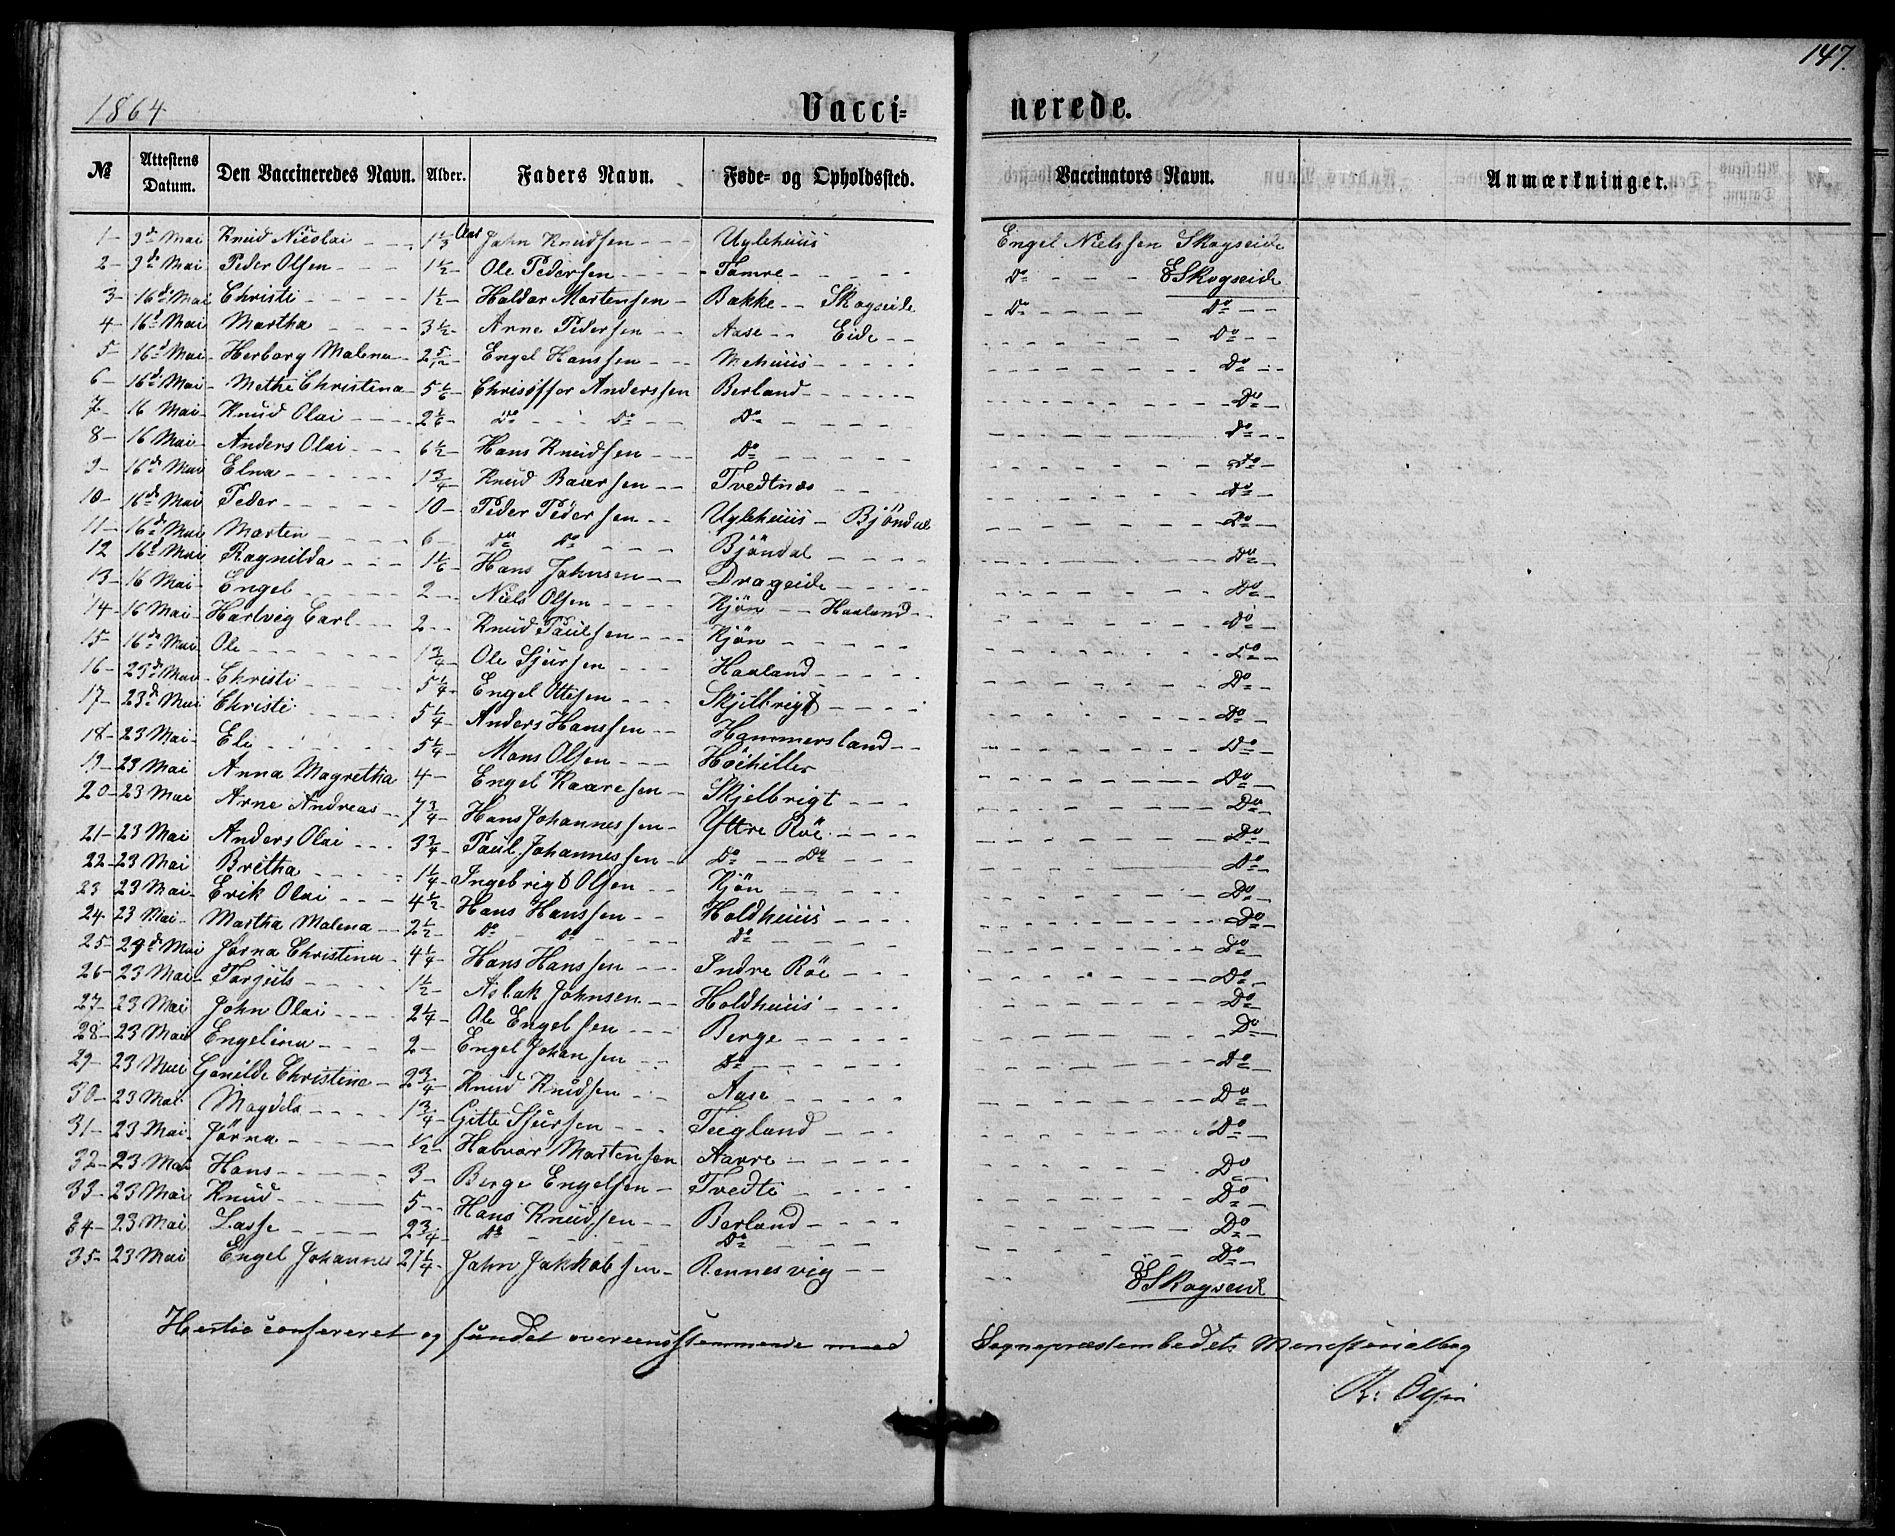 147.
1864 Vacci- nerede.
№ Attestens Datum. Den Vaccineredes Navn. Alder. Faders Navn. Føde- og Opholdssted. Vaccinators Navn. Anmærkninger.
1 - 9d Mai Knud Nicolai - - - 1 1/3 Aar John Knudsen - - - Uglehuus Engel Nielssen Skogseide
2 - 9d Mai Peder Olsen - - - 1 1/2 - Ole Pedersen - - - - Tømre - - - - - Do - - - ESkogseide
3 - 16d Mai Christi - - - - - 1 1/2 - Haldor Mortensen - Bakke - - Skogseide - Do - - - - - Do - -
4 - 16d Mai Martha - - - - 3 1/2 - Arne Pedersen - - Aase - - Eide - - Do - -
5 - 16d Mai - Herborg Malena - 2 5/12 - Engel Hanssen - - Mehuus - - - - - Do - -
6 - 16d Mai - Methe Christena - 5 1/6 - Chrisoffer Anderssen Berland - - - - - - Do -
7 - 16 Mai - Knud Olai - - - - 2 1/6 - Do - - - Do - - Do - - - - - Do - -
8 - 16 Mai - Anders Olai - - - 6 1/2 - Hans Knudsen - - - Do - - - - - Do -
9 - 16d Mai Elna - - - - - 1 3/4 - Knud Baarsen - - Tvedtnæs - - - Do -
10 - 16d Mai Peder - - - - - 10 - Peder Pedersen - - Uglehuus - Bjöndal Do -
11 - 16d Mai Morten - - - - - 6 - Do Do - - - - Bjöndal - - - - - Do -
12 16d Mai Ragnilda - - - 1 1/6 - Hans Johnsen - - Drageide - - - - Do -
13 - 16 Mai - Engel - - - - - 2 - - Niels Olsen - - - - Kjön - - Haaland - Do -
14 - 16 Mai - Hartvig Carl - - - 2 - - Knud Paulsen - - - Kjön - - - - - Do -
15 - 16d Mai Ole - - - - - - 1 3/4 - Ole Sjursen - - - Haaland - - - - - Do -
16 - 23d Mai - Christi - - - - 5 1/4 - Engel Ottesen - - - Skjelbrigt - - - - Do -
17 - 23d Mai Christi - - - - 5 1/4 - Anders Hanssen - - Hammersland - - Do -
18 - 23 Mai - Eli - - - - - 5 1/4 - Mons Olsen - - - Do -
19 - 23 Mai Anna Magretha 4 - Engel Kaaresen - Skjelbrigt - - - Do -
20 - 23 Mai Arne Andreas - - 7 3/4 - Hans Johannessen - Yttre Röe - - - - Do -
21 - 23 Mai Anders Olai - - - 3 3/4 - Paul Johannessen - Do - - Do - - - - Do -
22 - 23 Mai Bretha - - - - - 1 1/4 - Ingebrigt Olsen - - Kjön - - - - - Do -
23 23 Mai - Erik Olai - - - 4 1/2 - Hans Hanssen - - Holdhuus - - - - Do -
24 23 Mai - Martha Malena - - 2 1/2 - Do - Do - - - - Do - - - - - Do -
25 - 24d Mai Jørna Christina - 4 1/4 - Hans Hanssen - - Indre Röe - - - Do -
26 - 23 Mai - Torjuls - - - - 1 1/2 - Aslak Johnsen - - Holdhuus - - - - Do -
27 - 23 Mai John Olai - - - - 2 1/4 - Ole Engelsen - - - Berge - - - - - Do -
28 - 23 Mai Engelina - - - 2 - Engel Johansen - - Do - - - - - - Do -
29 - 23 Mai Gonilde Christina - 2 3/4 - Knud Knudsen - - Aase - - - - - Do
30 - 23 Mai Magdela - - - - 1 3/4 - Gitle Sjursen - - - Teigland - - - Do -
31 - 23 Mai - Jörna - - - - - 1/2 - Halvor Mortensen Aarre - - - - - Do -
32 - 23 Mai Hans - - - - - 3 - Berge Engelsen - Tvedte - - - - Do -
33 - 23 Mai Knud - - - - - 5 - - Hans Knudsen - - Berland - - - - Do -
34 - 23 Mai Lasse - - - - 2 3/4 - Do - - - - - Do - - - - Do -
35 - 23 Mai Engel Johannes 21 1/4 - John Jakkobsen - Rennesvig - - Do -
ESkogseide
Hertil confereret og fundet overeensstemmende med Sognepræstembedets Menesterialbog
R: Olsen